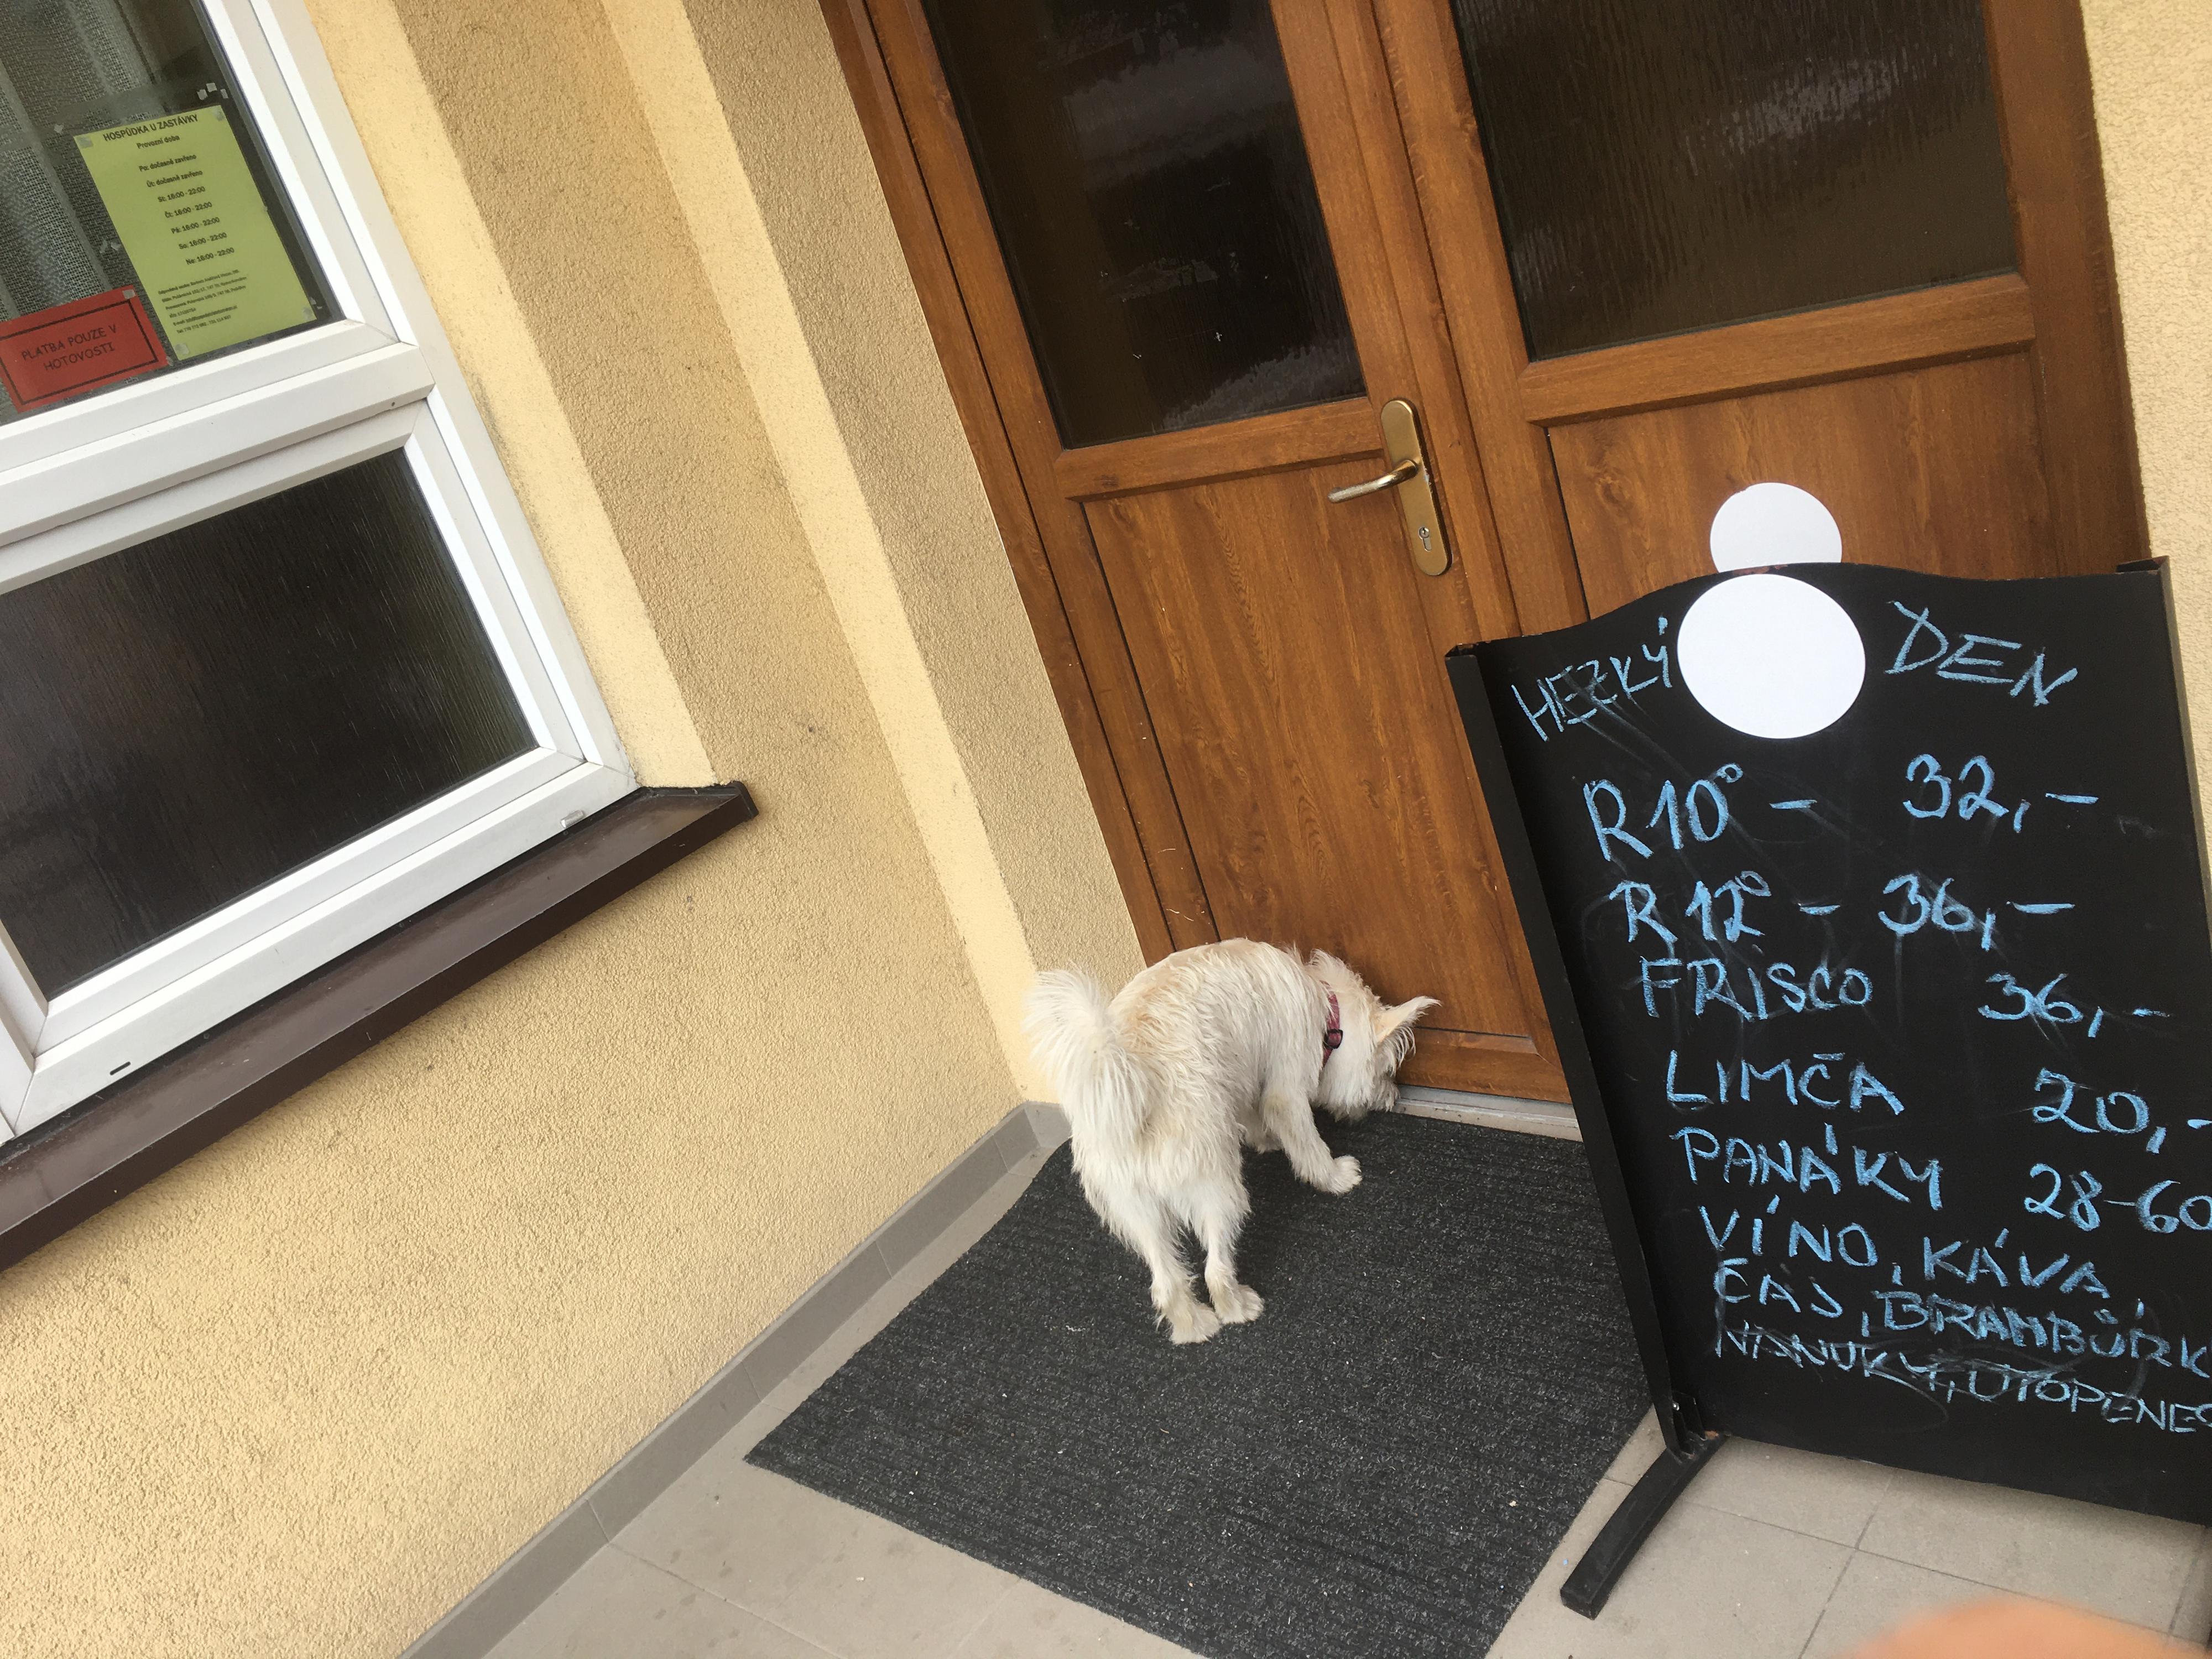 HOSPŮDKA U ZASTÁVKY
Provozní doba
Po: dočasně zavřeno
Út: dočasně zavřeno
St: 16:00 - 22:00
Čt: 16:00 - 22:00
Pá: 16:00 - 22:00
So: 16:00 - 22:00
Ne: 16:00 - 22:00
PLATBA POUZE V
HOTOVOSTI
HEZKÝ DEN
R10° - 32,-
R 12° - 36,-
FRISCO 36,-
LIMČA 20,-
PANÁKY 28-60
VÍNO, KÁVA,
ČAJ, BRAMBŮRK
NANUKY, UTOPENEC